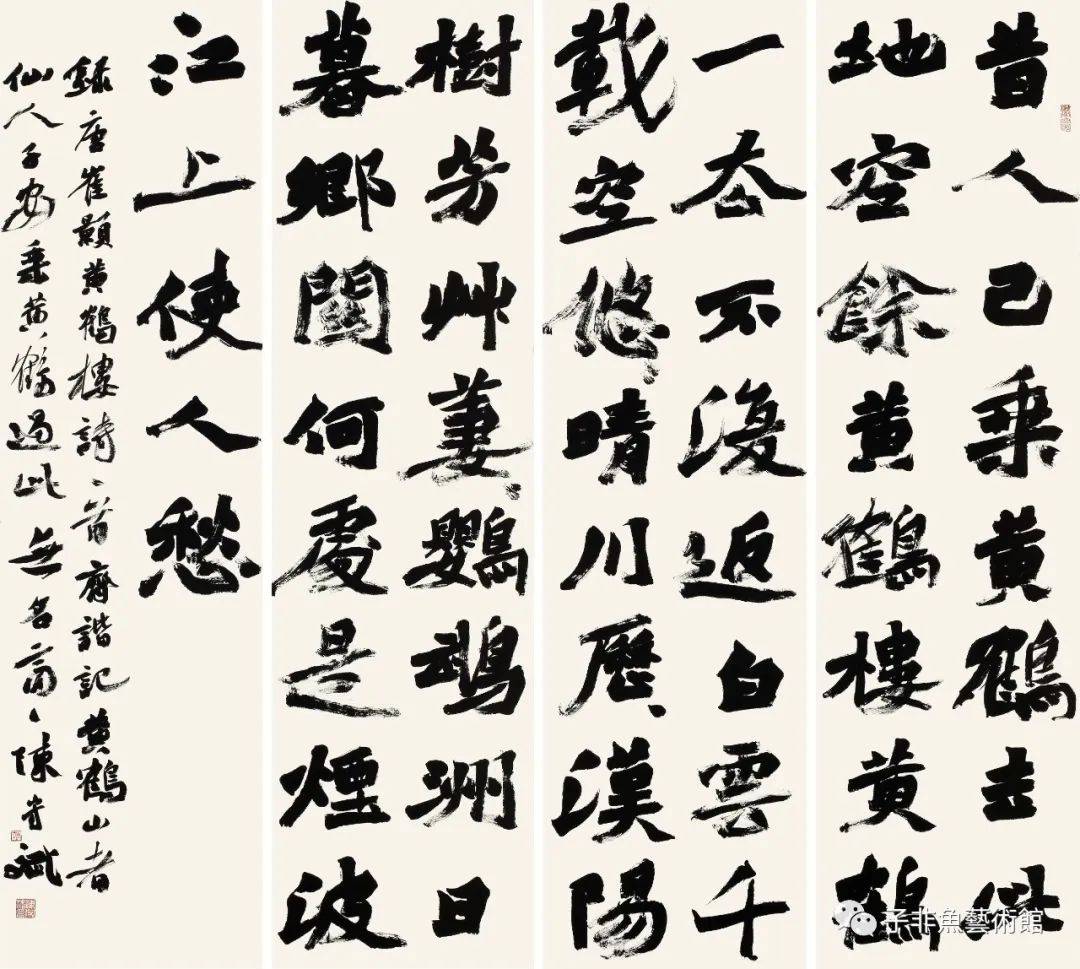 昔人已乘黄鶴去此
地空餘黄鶴樓黄鶴
一去不復返白雲千
載空悠〻晴川歷〻漢陽
樹芳艸萋〻鸚鵡洲日
暮鄉關何處是煙波
江上使人愁
錄唐崔顥黄鶴樓詩〻齊諧記黄鶴山者
仙人子安乘黄鶴過此無名齋〻陳
子非魚藝術館